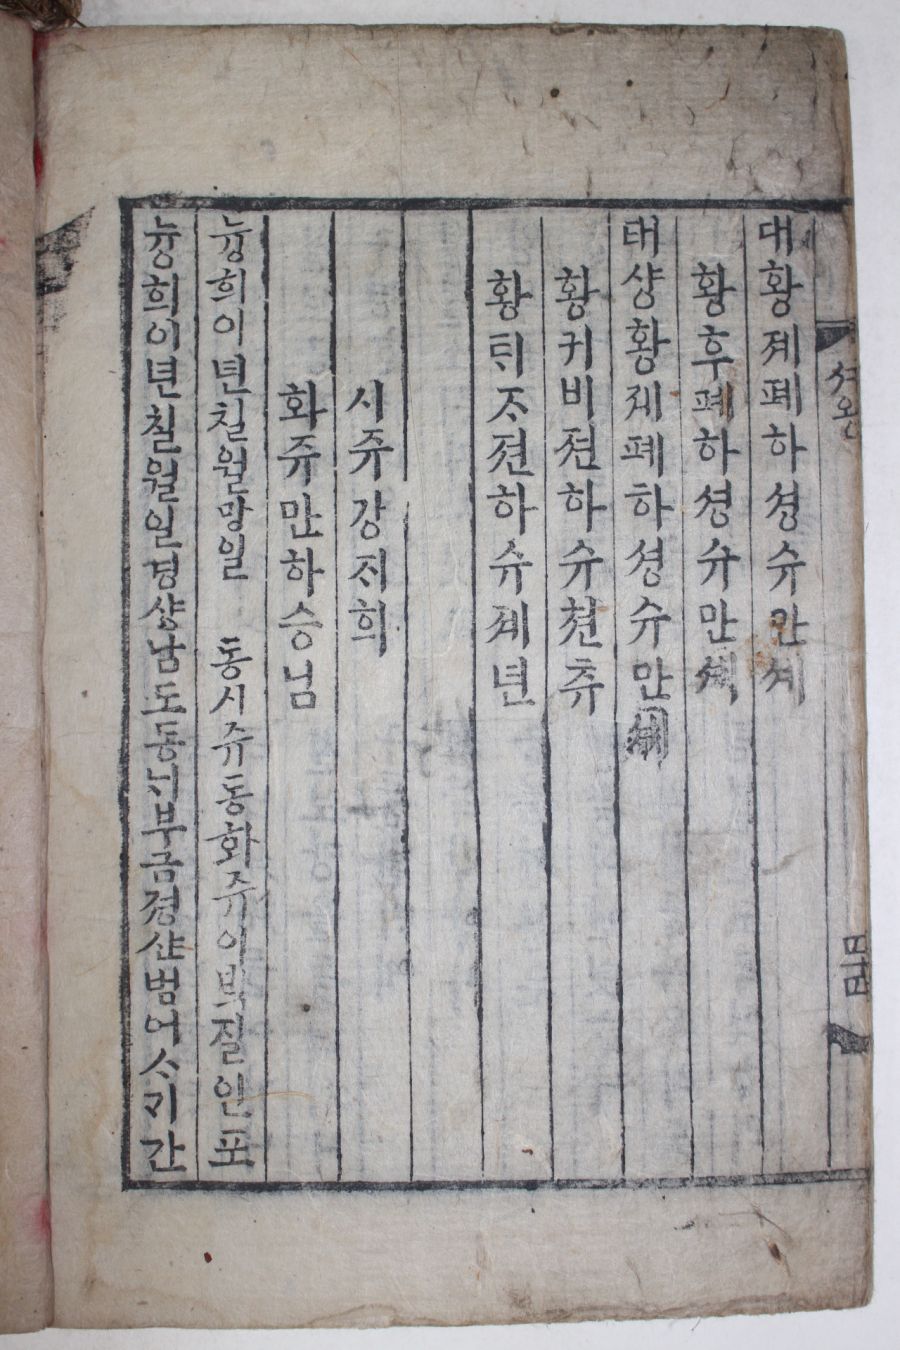 셔왕
대황졔폐하셩슈만셰
황후폐하셩슈만셰
대샹황졔폐하셩슈만셰
황귀비젼하슈쳔츄
황ᄐᆡᄌᆞ젼하슈졔년
시쥬강지희
화쥬만하승님
늉희이년칠월망일 동시쥬동화쥬이ᄇᆡᆨ질인포
늉희이년칠월일경샹남도동ᄂᆡ부금졍샨범어ᄉᆞ기간